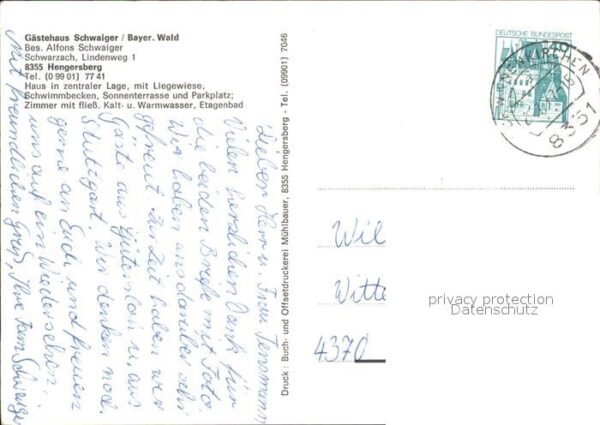 Gästehaus Schwaiger / Bayer. Wald
Bes. Alfons Schwaiger
Schwarzach, Lindenweg 1
8355 Hengersberg
Tel. (0 99 01) 77 41
Haus in zentraler Lage, mit Liegewiese,
Schwimmbecken, Sonnenterrasse und Parkplatz;
Zimmer mit fließ. Kalt- u. Warmwasser, Etagenbad
Druck: Buch- und Offsetdruckerei Mühlbauer, 8355 Hengersberg - Tel. (09901) 7046
Lieber Herr u. Frau
Vielen herzlichen Dank für
die beiden Briefe mit Foto.
Wir haben uns darüber sehr
gefreut. Zur Zeit haben wir
Gäste aus Gütersloh u. aus
Stuttgart. Wir denken noch
gerne an Euch und freuen
uns auf ein Wiedersehen.
Mit freundlichen Gruß, Ihre Fam. Schwaiger
DEUTSCHE BUNDESPOST
40
8351
Wil
Witte
4370
privacy protection
Datenschutz